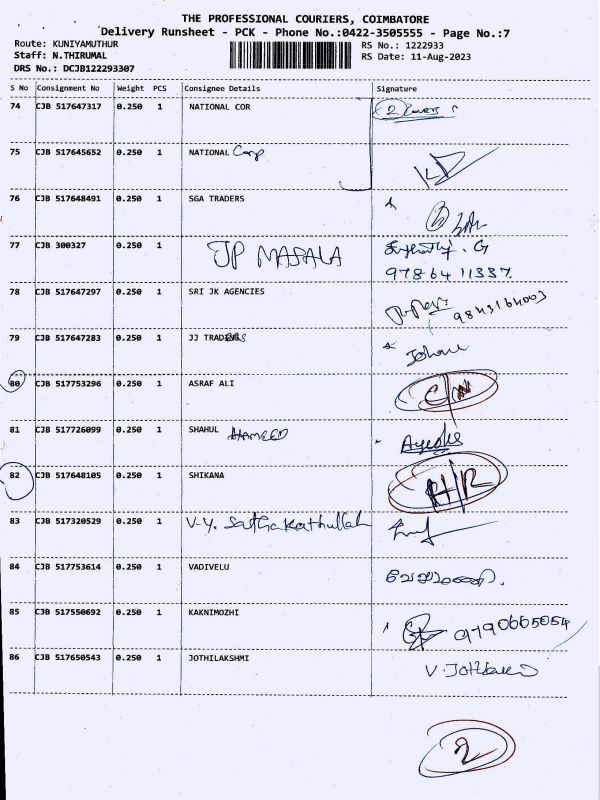 THE PROFESSIONAL COURIERS, COIMBATORE
Delivery Runsheet - PCK - Phone No.:0422-3505555 - Page No.:7
Route: KUNIYAMUTHUR
RS No.: 1222933
Staff: N.THIRUMAL
RS Date: 11-Aug-2023
DRS No.: DCJB122293307
S No Consignment No Weight PCS Consignee Details Signature
74 CJB 517647317 0.250 1 NATIONAL COR 2
75 CJB 517645652 0.250 1 NATIONAL Corp
76 CJB 517648491 0.250 1 SGA TRADERS
77 CJB 300327 0.250 1 JP MASALA
9786411337
78 CJB 517647297 0.250 1 SRI JK AGENCIES 9843164003
79 CJB 517647283 0.250 1 JJ TRADERS
80 CJB 517753296 0.250 1 ASRAF ALI
81 CJB 517726099 0.250 1 SHAHUL HAMEED
82 CJB 517648105 0.250 1 SHIKANA
83 CJB 517320529 0.250 1 V-Y. Sathakathullah
84 CJB 517753614 0.250 1 VADIVELU
85 CJB 517550692 0.250 1 KAKNIMOZHI 9790665054
86 CJB 517650543 0.250 1 JOTHILAKSHMI
2